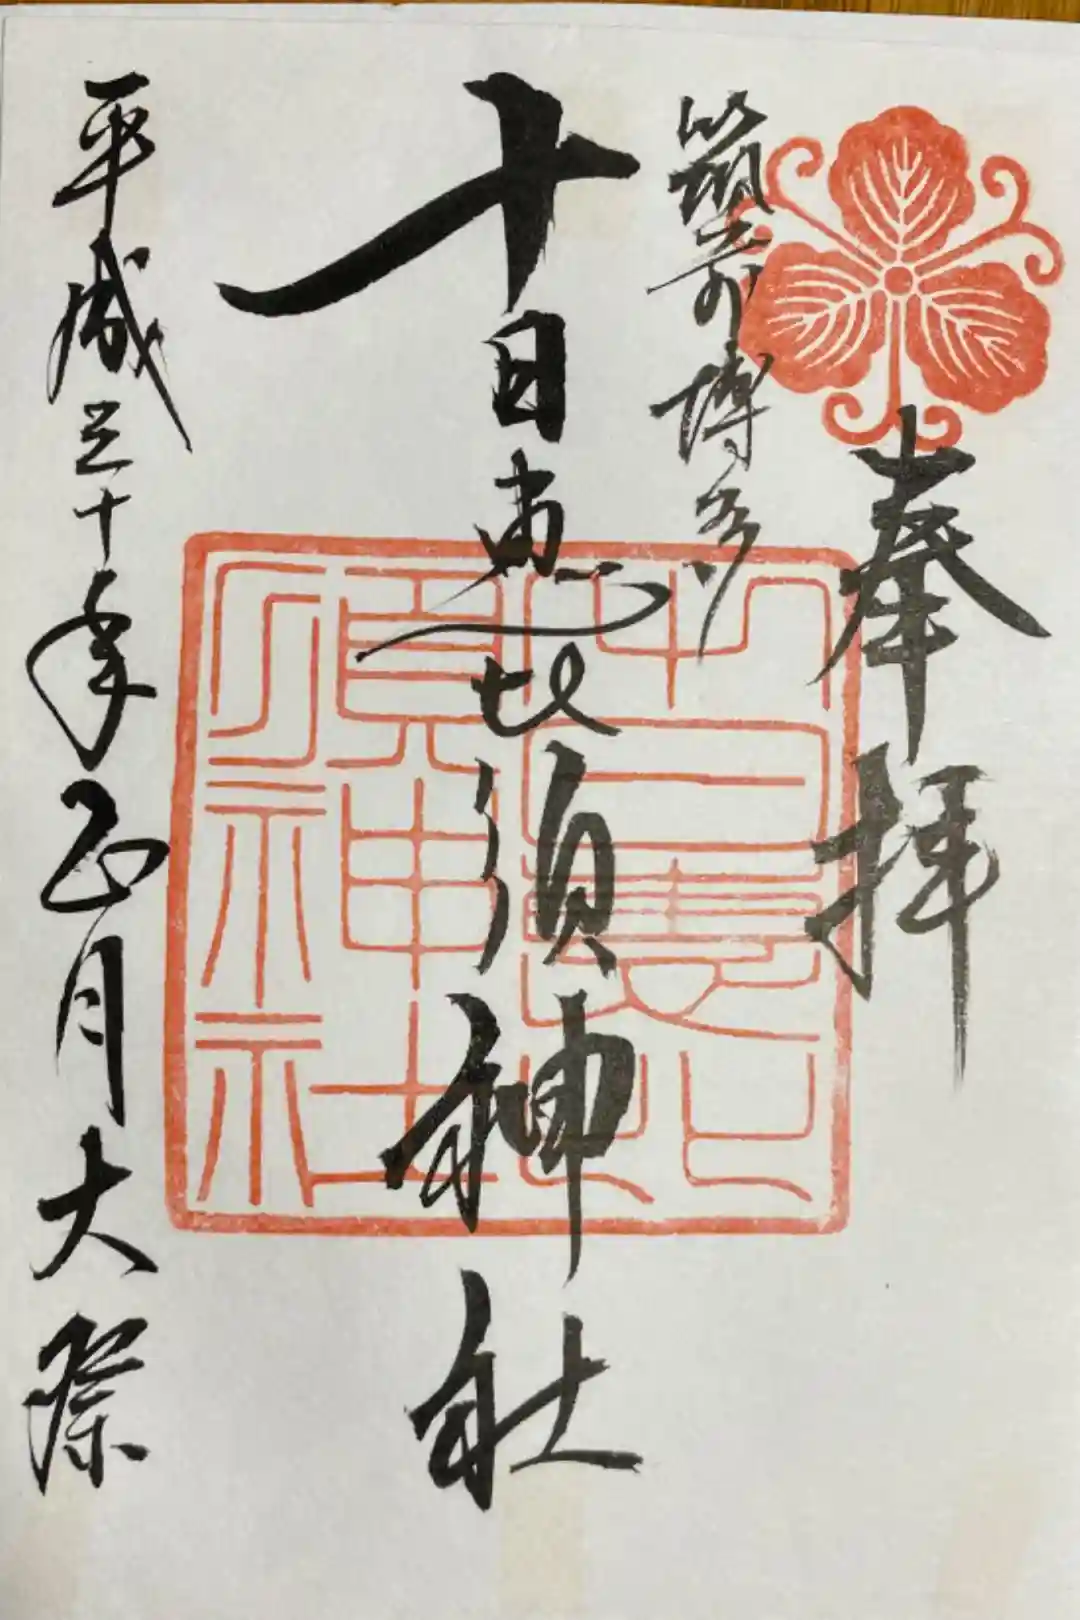 奉拝
筑前博多
十日恵比須神社
平成三十年正月大祭
十日恵比須神社